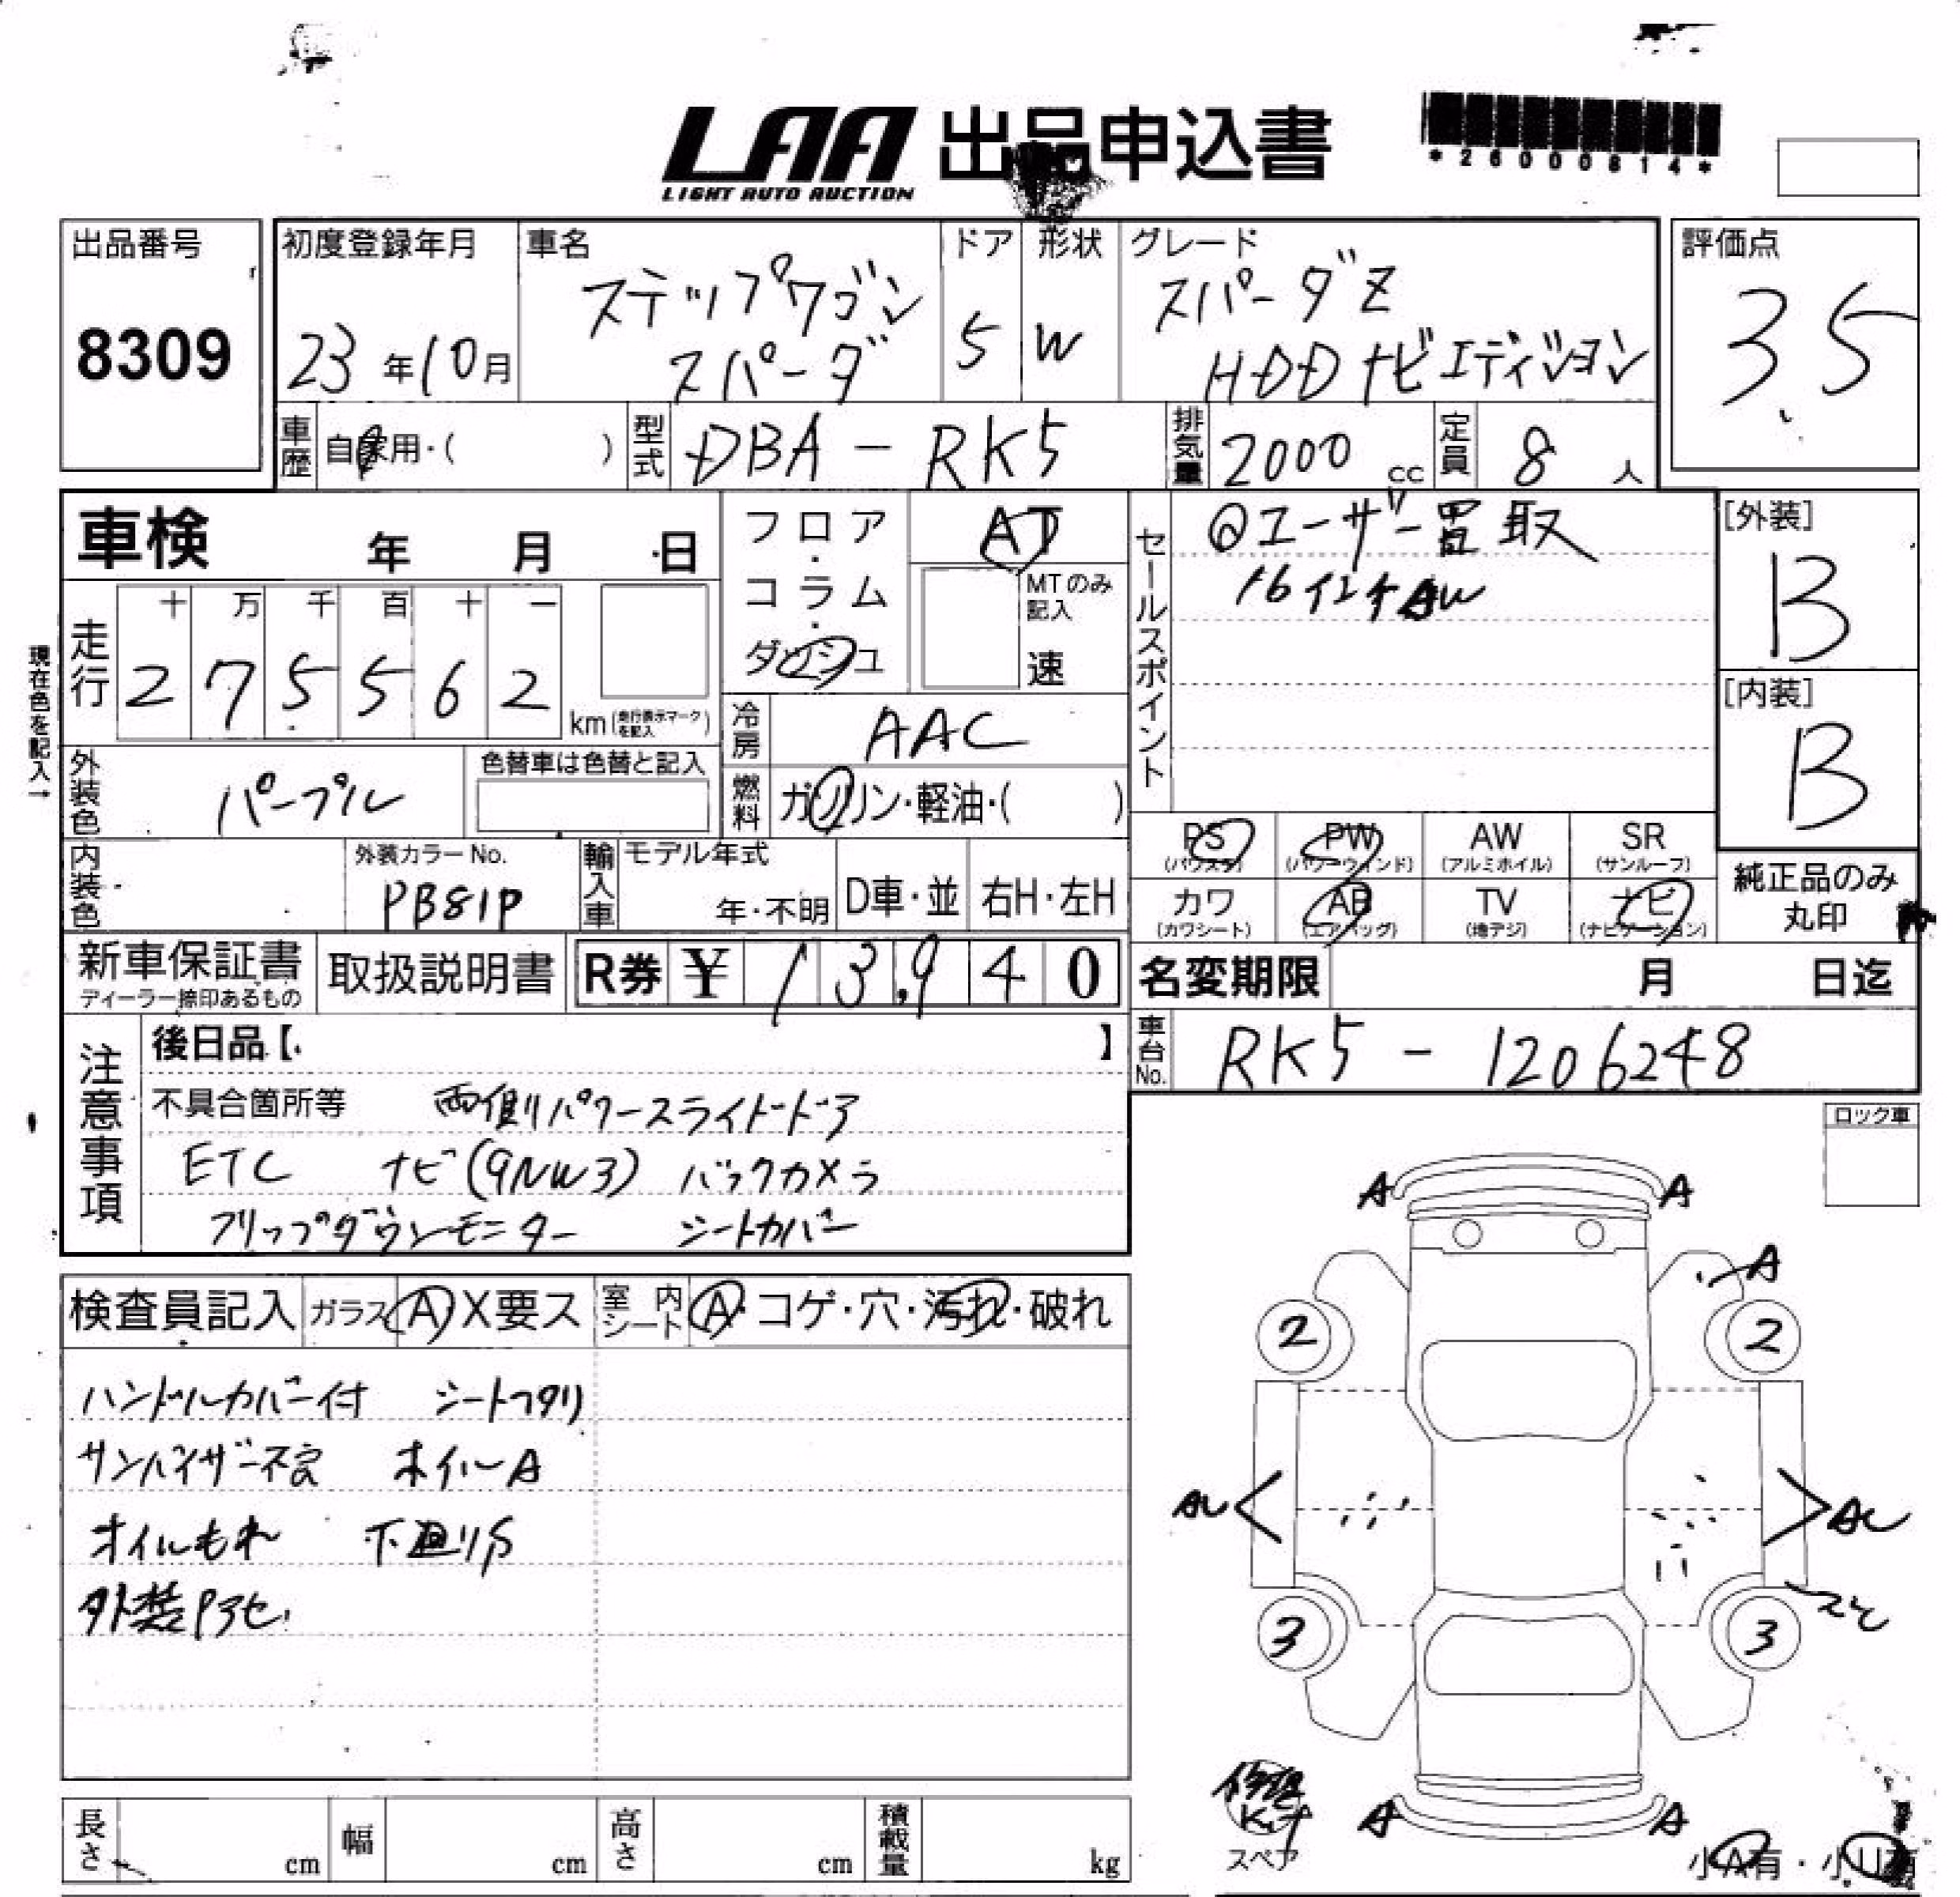 LAA 出品申込書
LIGHT AUTO AUCTION
*26000814*
出品番号
8309
初度登録年月
23年10月
車名
ステップワゴン
スパーダ
ドア
5
形状
W
グレード
スパーダZ
HDDナビエディション
評価点
3.5
車歴 自家用・( )
型式 DBA-RK5
排気量 2000 cc
定員 8 人
車検 年 月 日
現在色を記入→
走行
十 万 千 百 十 一
2 7 5 5 6 2
km(走行表示マークを記入)
フロア・コラム・ダッシュ
AT
MTのみ記入
速
冷房 AAC
燃料 ガソリン・軽油・( )
セールスポイント
@ユーザー買取
16インチAW
[外装]
B
[内装]
B
外装色 パープル
色替車は色替と記入
内装色
外装カラーNo.
PB81P
輸入車
モデル年式
年・不明
D車・並
右H・左H
PS
(パワステ)
PW
(パワーウィンド)
AW
(アルミホイル)
SR
(サンルーフ)
カワ
(カワシート)
AB
(エアバッグ)
TV
(地デジ)
ナビ
(ナビゲーション)
純正品のみ
丸印
新車保証書
ディーラー捺印あるもの
取扱説明書
R券 ¥ 13,940
名変期限 月 日迄
車台No. RK5-1206248
注意事項
後日品【 】
不具合箇所等 両側パワースライドドア
ETC ナビ(9NW3) バックカメラ
フリップダウンモニター シートカバー
ロック車
検査員記入
ガラス A X要ス
室内シート A・コゲ・穴・汚れ・破れ
ハンドルカバー付 シートヘタリ
サンバイザー不良 ホイールA
オイルもれ 下廻りS
外装色アセ
A A
A
2 2
AU AU
3 3
A A
修理
Kit
スペア
小A有・小U有
長さ cm
幅 cm
高さ cm
積載量 kg